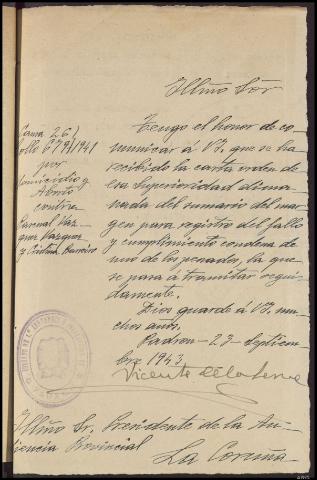 Illmo Sor
Causa 26/
rollo 679/1941
por
homicidio y
Aborto
contra
Vaz-
quez Vazquez
y Cristina Barreiro
Tengo el honor de co-
municar á VI. que se ha
recibido la carta orden de
esa Superioridad dima-
nada del sumario del mar-
gen para registro del fallo
y cumplimiento condena de
uno de los penados, la que
se pasa á tramitar segui-
damente.
Dios guarde á VI. mu-
chos años.
Padron-23-Septiem-
bre 1943.
Vicente de la Serna
Illmo Sr. Presidente de la Au-
diencia Provincial
La Coruña-